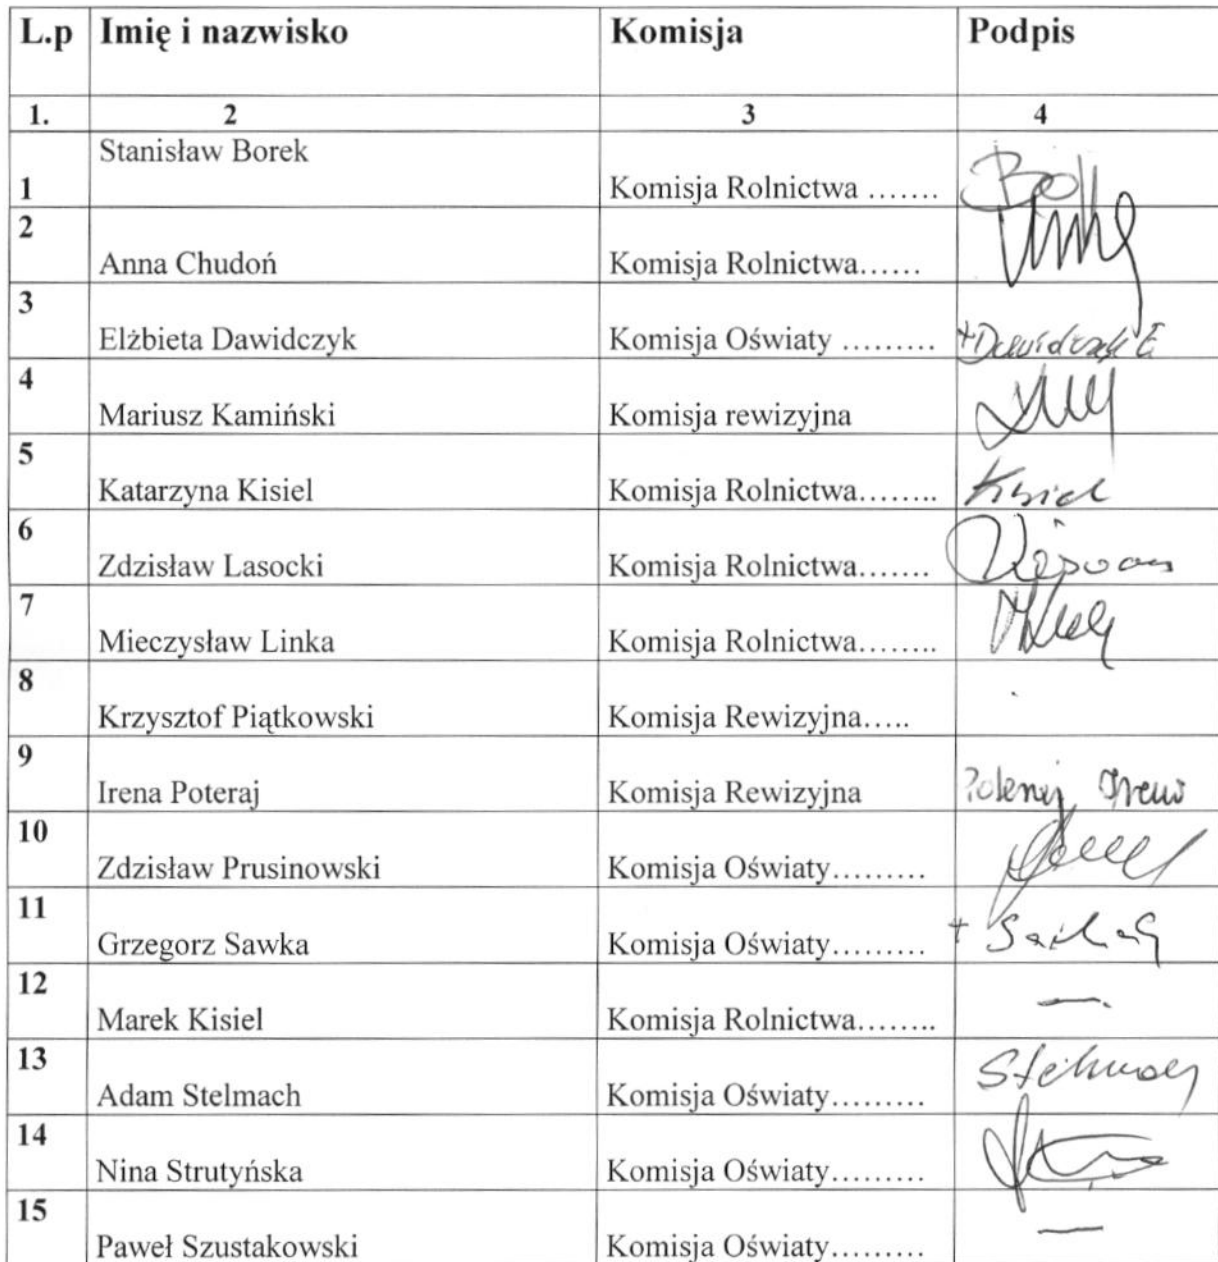 L.p Imię i nazwisko Komisja Podpis
1. 2 3 4
Stanisław Borek
1 Komisja Rolnictwa .......
2
Anna Chudoń Komisja Rolnictwa......
3
Elżbieta Dawidczyk Komisja Oświaty ......... + Dawidczyk E.
4
Mariusz Kamiński Komisja rewizyjna
5
Katarzyna Kisiel Komisja Rolnictwa........ Kisiel
6
Zdzisław Lasocki Komisja Rolnictwa.......
7
Mieczysław Linka Komisja Rolnictwa........
8
Krzysztof Piątkowski Komisja Rewizyjna.....
9
Irena Poteraj Komisja Rewizyjna Poteraj Irena
10
Zdzisław Prusinowski Komisja Oświaty.........
11
Grzegorz Sawka Komisja Oświaty......... + Sawka G
12
Marek Kisiel Komisja Rolnictwa........ —
13
Adam Stelmach Komisja Oświaty......... Stelmach
14
Nina Strutyńska Komisja Oświaty.........
15
Paweł Szustakowski Komisja Oświaty......... —